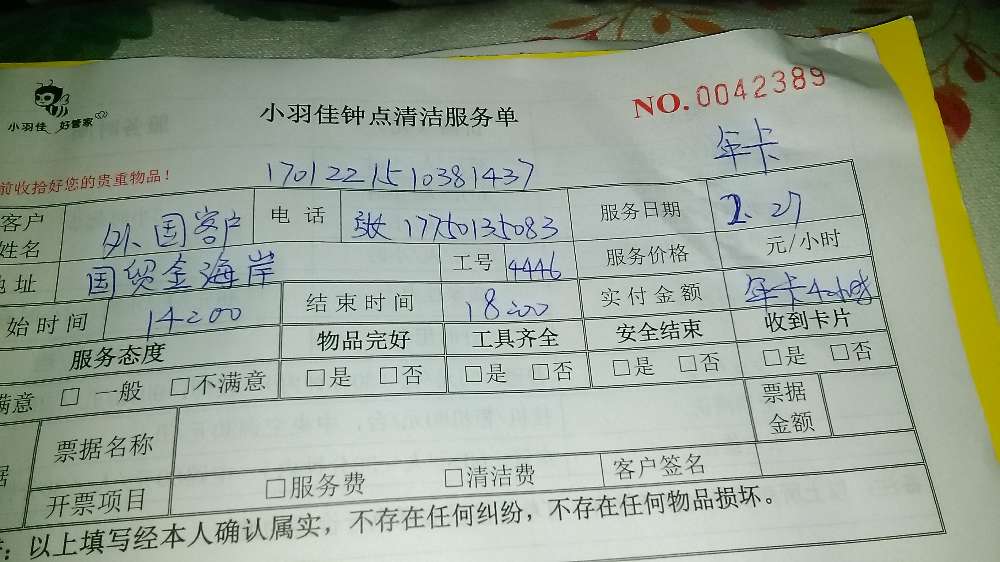 小羽佳 好管家
小羽佳钟点清洁服务单
NO.0042389
年卡
前收拾好您的贵重物品!
1701221510381437
客户姓名 外国客户 电话 17750135083 服务日期 2.27
地址 国贸金海岸 工号 4446 服务价格 元/小时
始时间 14:00 结束时间 18:00 实付金额 年卡4小时
服务态度 物品完好 工具齐全 安全结束 收到卡片
满意 □ 一般 □不满意 □是 □否 □是 □否 □是 □否 □是 □否
票据名称 票据金额
据 开票项目 □服务费 □清洁费 客户签名
:以上填写经本人确认属实,不存在任何纠纷,不存在任何物品损坏。